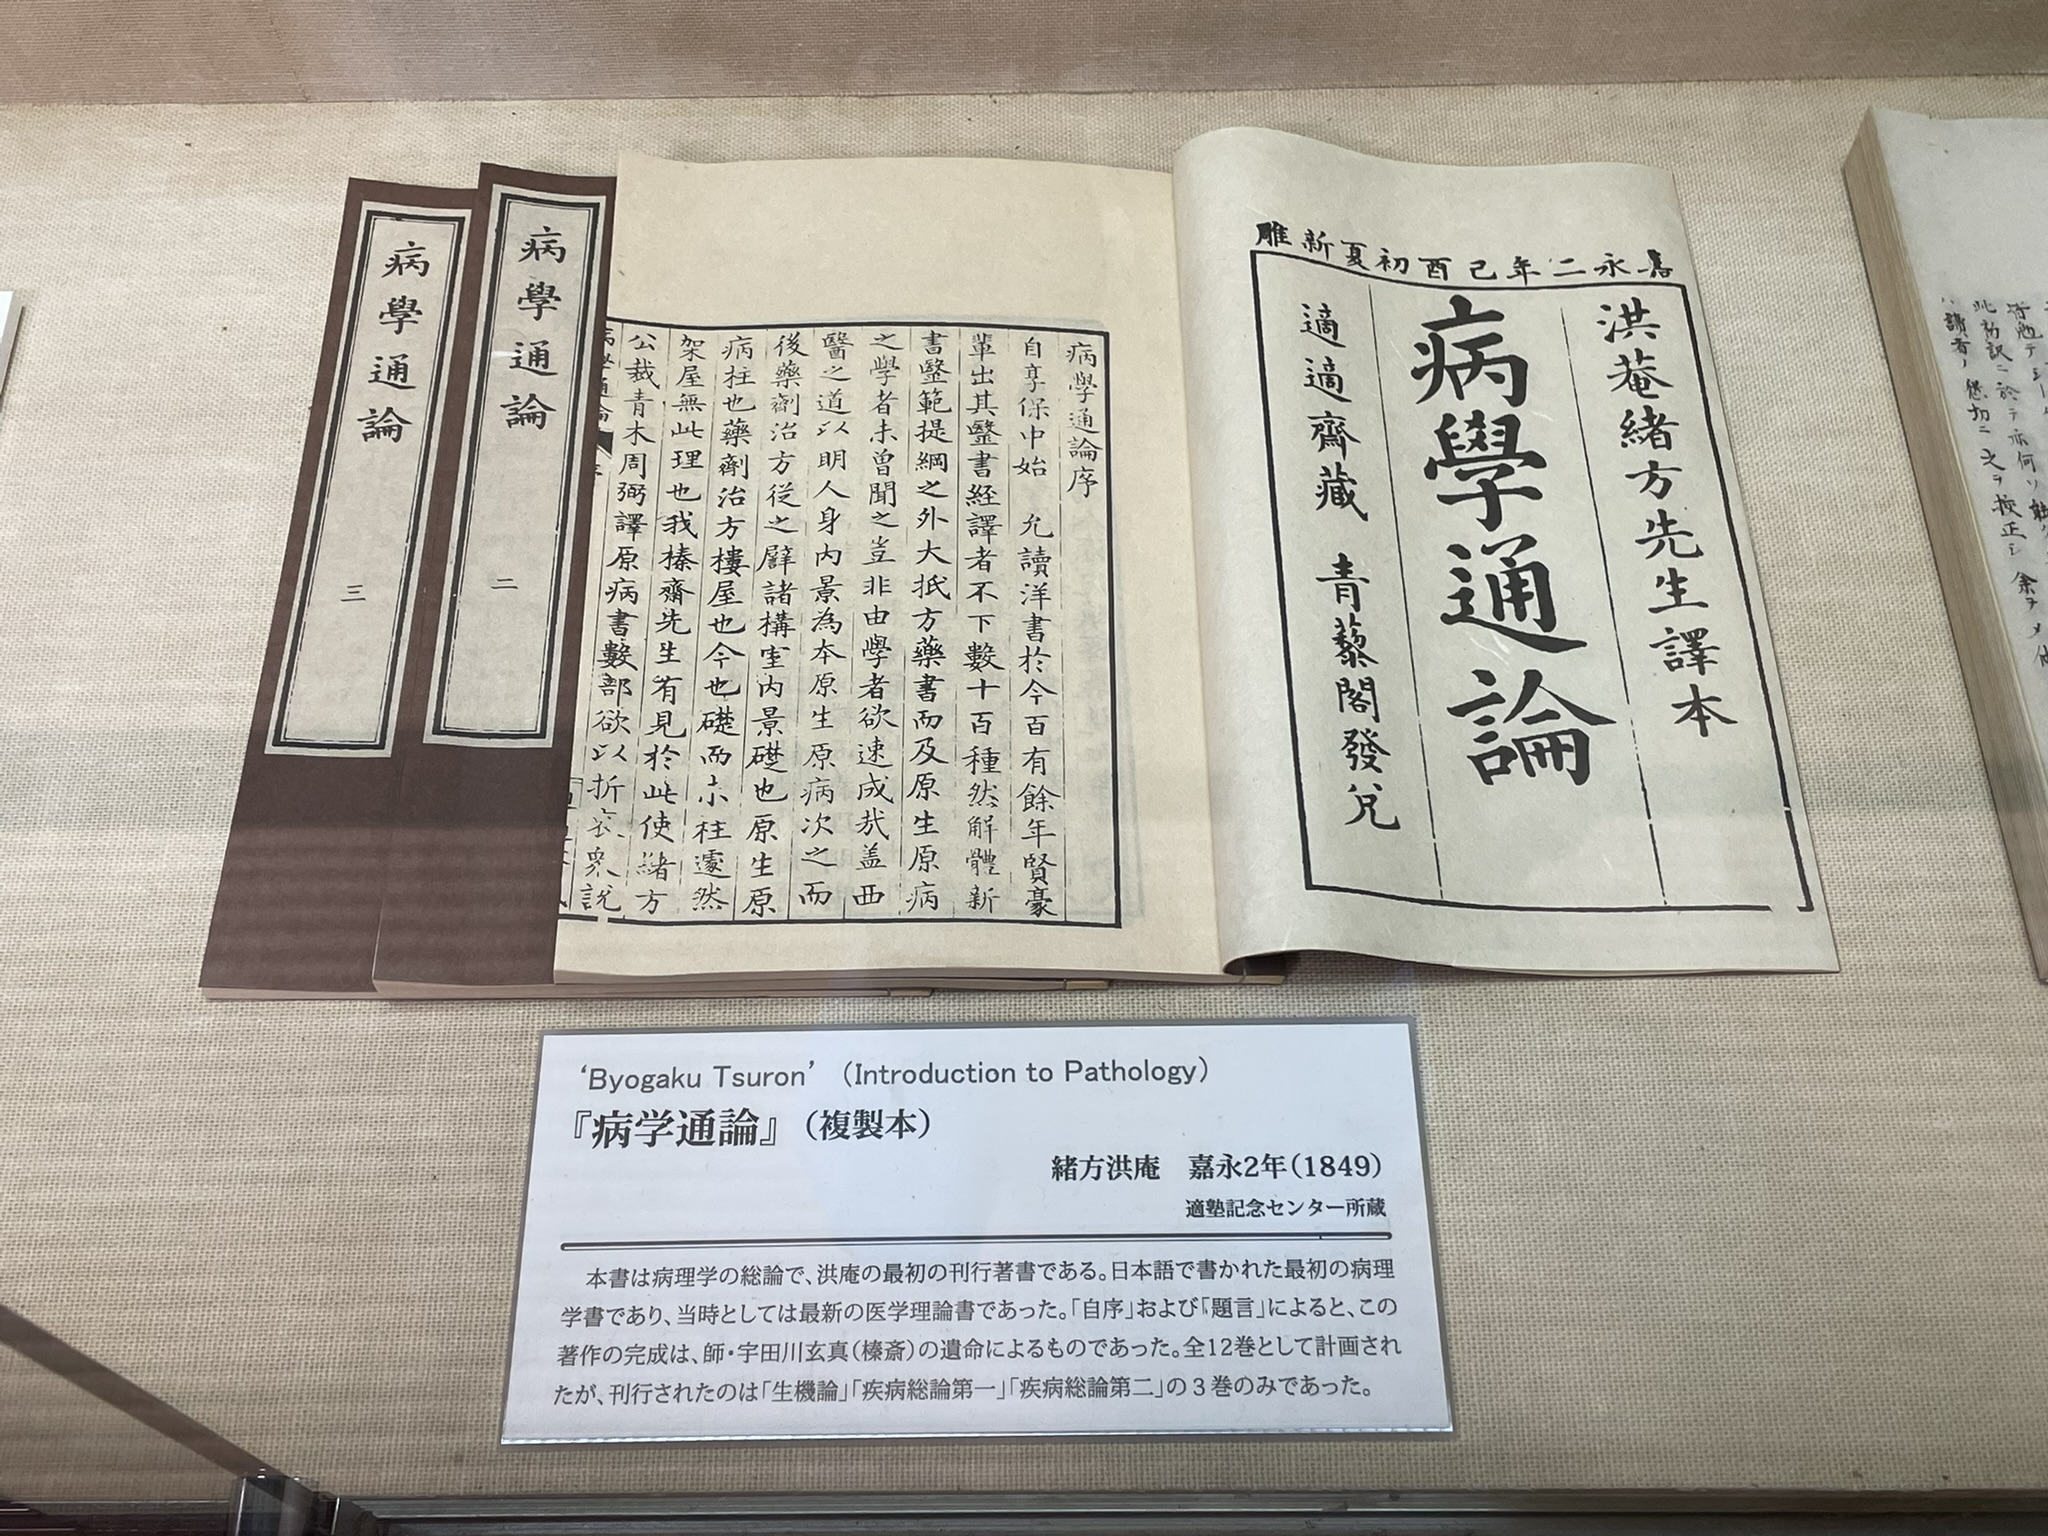 嘉永二年己酉初夏新雕
洪菴緒方先生譯本
病學通論
適適齋藏 青藜閣發兌
病學通論序
自享保中始 允讀洋書於今百有餘年賢豪
輩出其醫書経譯者不下數十百種然解體新
書毉範提綱之外大抵方藥書而及原生原病
之學者未曾聞之豈非由學者欲速成㢤盖西
醫之道以明人身内景為本原生原病次之而
後藥劑治方従之譬諸構室内景礎也原生原
病柱也藥劑治方樓屋也今也礎而未柱遽然
架屋無此理也我榛齋先生有見於此使緒方
公裁青木周弼譯原病書數部欲以折衷衆説
病學通論
二
病學通論
三
‘Byogaku Tsuron’ (Introduction to Pathology)
『病学通論』（複製本）
緒方洪庵 嘉永2年（1849）
適塾記念センター所蔵
本書は病理学の総論で、洪庵の最初の刊行著書である。日本語で書かれた最初の病理
学書であり、当時としては最新の医学理論書であった。「自序」および「題言」によると、この
著作の完成は、師・宇田川玄真（榛斎）の遺命によるものであった。全12巻として計画され
たが、刊行されたのは「生機論」「疾病総論第一」「疾病総論第二」の３巻のみであった。